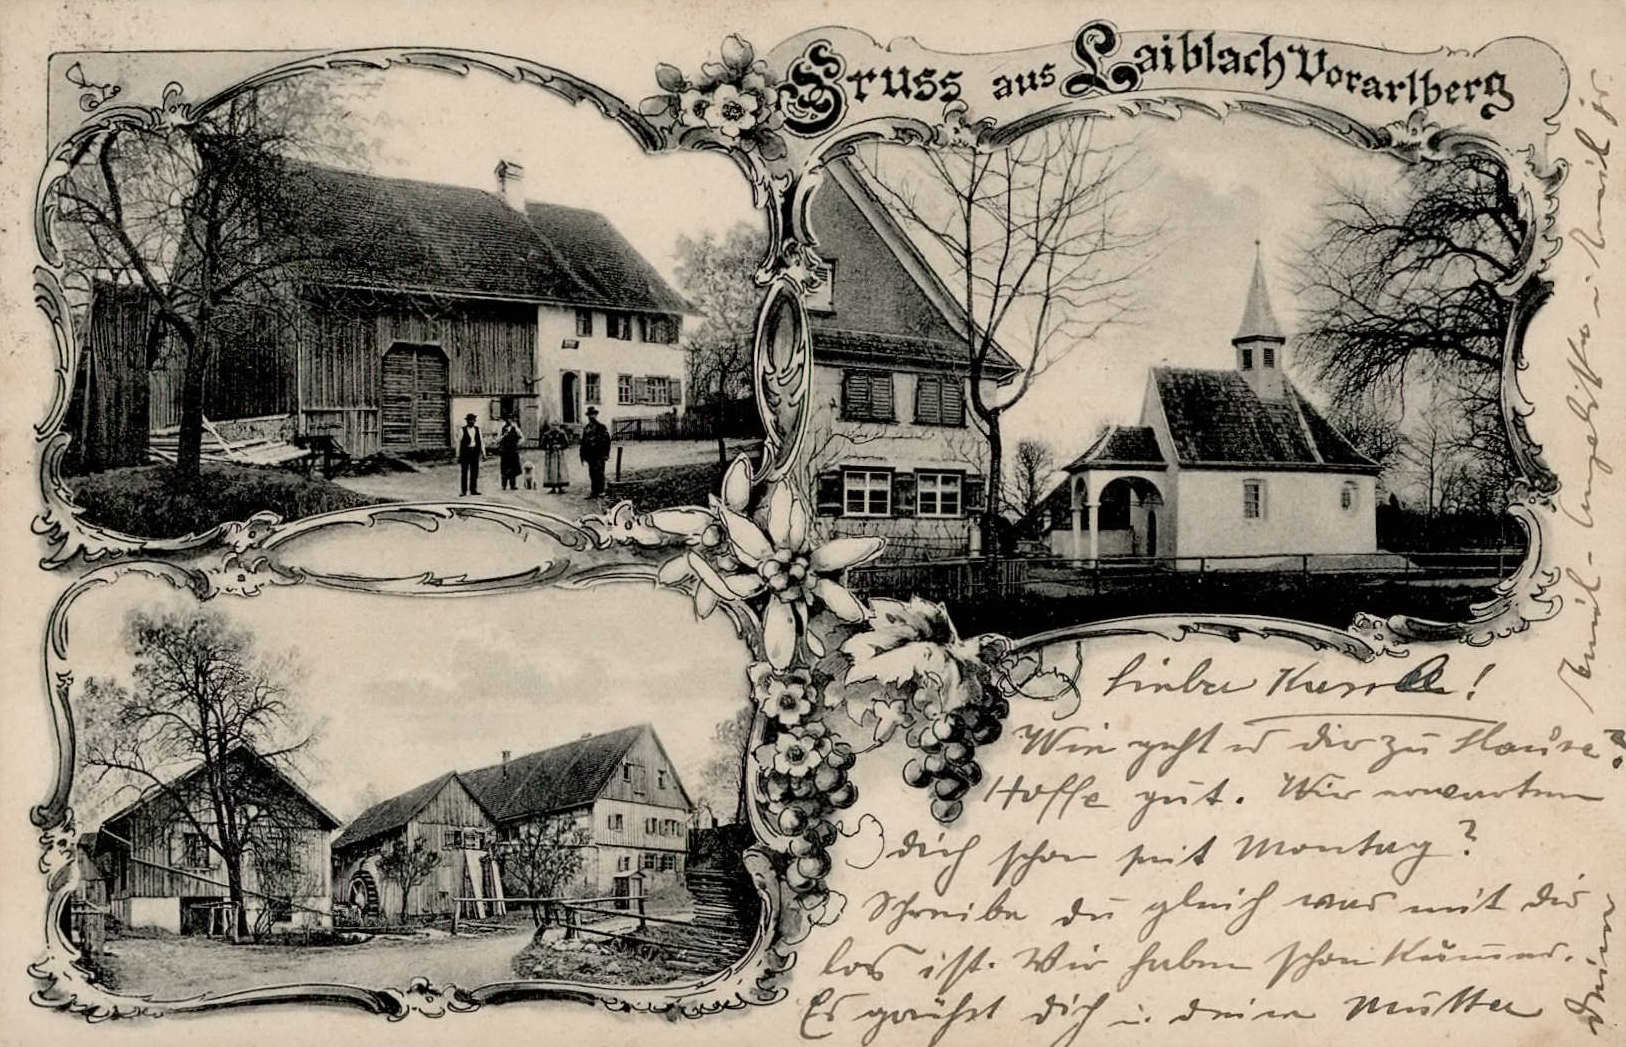 Gruss aus Laiblach Vorarlberg
Liebe
Wie geht es dir zu Hause?
Hoffe gut. Wir erwarten
dich schon seit Montag?
Schreibe du gleich was mit dir
los ist. Wir haben schon Kummer.
Es grüßt dich u. deine Mutter
Deine
Emil - Angelika u. Emil jr.